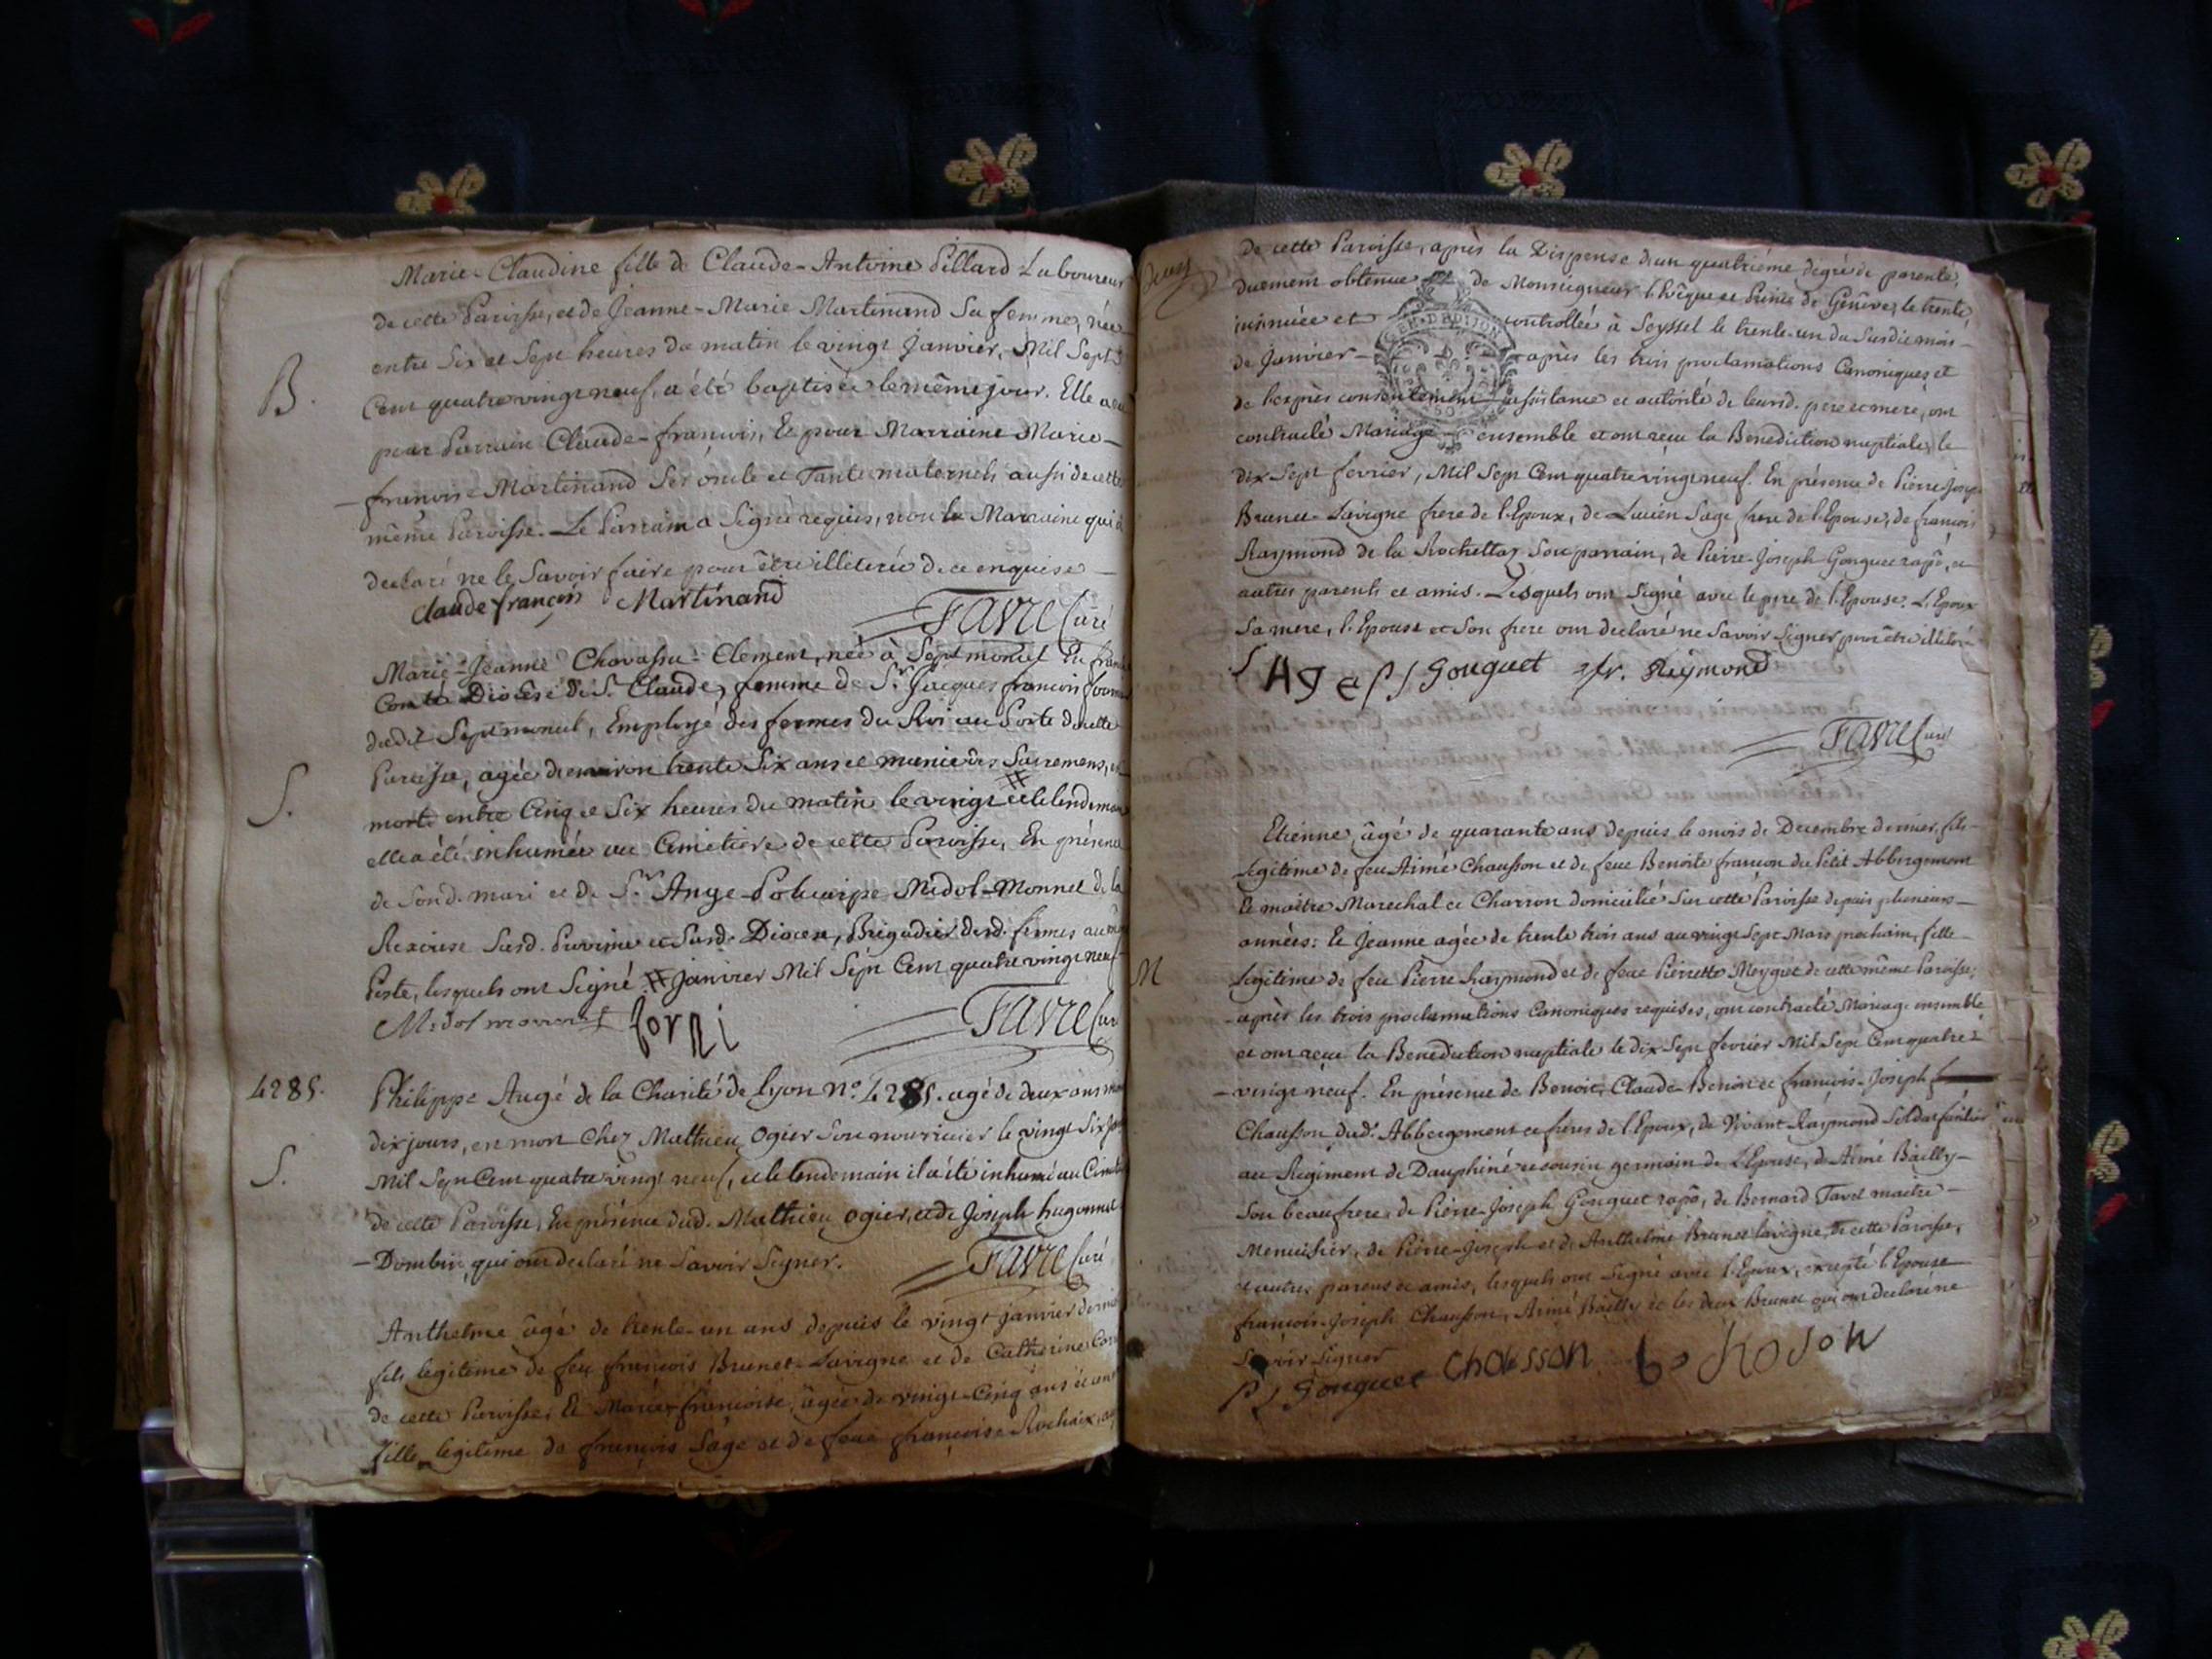 Marie-Claudine fille de Claude-Antoine Pillard Laboureur
de cette Paroisse, et de Jeanne-Marie Martinand Sa femme, née
entre Six et Sept heures du matin le vingt Janvier, Mil Sept
B.
Cent quatre vingt neuf, a été baptisée le même jour. Elle a eu
pour Parrain Claude-francois, Et pour Marraine Marie-
francoise Martinand Ses oncle et Tante maternels aussi de cette
même Paroisse. Le Parrain a Signé requis, non la Marraine qui a
declaré ne le Savoir faire pour être illiterée de ce enquise
Claude françois Martinand
Favre Curé
Marie-Jeanne Chavassu-Clement, née à Septmoncel En franche
Comté Diocèse de St. Claude, femme de Sr. Jacques francois
dudit Septmoncel, Employé des fermes du Roi au Poste de cette
Paroisse, agée d'environ trente Six ans et munie des Sacremens, est
S.
morte entre Cinq et Six heures du matin le vingt # et le lendemain
elle a été inhumée au Cimetiere de cette Paroisse, En présence
de Sond. mari et de Sr. Ange-Policarpe Midol-Monnet de la
Rixouse Susd. Province et Susd. Diocese, Brigadier desd. fermes au
Poste, lesquels ont Signé. # janvier Mil Sept Cent quatre vingt neuf
Midol monnet forni
Favre Curé
4285.
Philippe Augé de la Charité de Lyon No. 4285. agé de deux ans
dix jours, est mort Chez Mathieu Ogier Son nourricier le vingt Six
S.
Mil Sept Cent quatre vingt neuf, et le lendemain il a été inhumé au
de cette Paroisse, En présence dud. Mathieu Ogier, et de Joseph hugonnet
-Dombin, qui ont declaré ne Savoir Signer.
Favre Curé
Anthelme âgé de trente-un ans depuis le vingt janvier dernier
fils legitime de feu francois Brunet-Lavigne et de Catherine
de cette Paroisse; Et Marie-francoise, âgée de vingt-Cinq ans
fille legitime de françois Sage et de feue françoise Rochaix,
de cette Paroisse, après la Dispense d'un quatriéme degré de parenté,
duement obtenue de Monseigneur l'Evêque et Prince de Genêve, le trente,
insinuée et controllée à Seyssel le trente-un du Susdit mois
GEN. D. DIJON
de Janvier après les trois proclamations Canoniques et
de l'exprès consentement assistance et autorité de leursd. pere et mere, ont
contracté Mariage ensemble et ont reçu la Benediction nuptiale, le
dix Sept fevrier, Mil Sept Cent quatre vingt neuf. En présence de Pierre-Joseph
Brunet-Lavigne frere de l'Epoux, de Lucien Sage frere de l'Epouse, de francois
Raymond de la Rochettaz Son parrain, de Pierre-Joseph Gouguet rapô, et
autres parents et amis. Lesquels ont Signé avec le pere de l'Epouse. L'Epoux
Sa mere, l'Epouse et Son frere ont declaré ne Savoir Signer pour être
SAge PJ Gouguet fr. Reymond
Favre Curé
Etienne, âgé de quarante ans depuis le mois de Decembre dernier, fils
Legitime de feu Aimé Chausson et de feue Benoite francon du Petit Abbergement
Et maitre Marechal et Charron domicilié Sur cette Paroisse depuis plusieurs
années: Et Jeanne agée de trente trois ans au vingt Sept Mars prochain, fille
M
Legitime de feu Pierre Raymond et de feue Pierrette Meyguet de cette même Paroisse;
après les trois proclamations Canoniques requises, ont contracté Mariage ensemble
et ont reçu la Benediction nuptiale le dix Sept fevrier Mil Sept Cent quatre
-vingt neuf. En présence de Benoit, Claude-Benoit et francois-Joseph
Chausson dud. Abbergement et freres de l'Epoux, de Vivant Raymond Soldat
au Regiment de Dauphiné et cousin germain de l'Epouse, de Aimé Bailly
Son beaufrere, de Pierre-Joseph Gouguet rapô, de Bernard Tavel maitre
Menuisier, de Pierre-Joseph et de Anthelme Brunet Lavigne, de cette Paroisse,
et autres parens et amis, lesquels ont Signé avec l'Epoux, excepté l'Epouse
francois-Joseph Chausson, Aimé Bailly et les deux Brunet qui ont declaré ne
Savoir Signer
PJ Gouguet Chausson